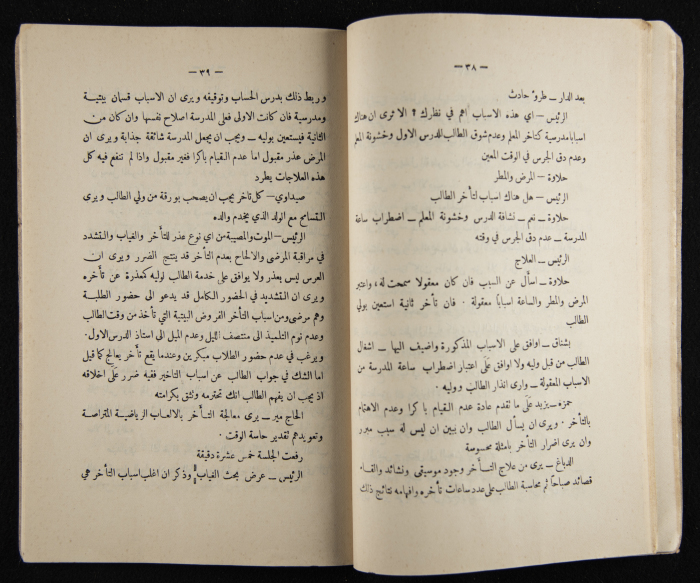 — ٣٨ —
بعد الدار — طروء حادث
الرئيس — اي هذه الاسباب اهم في نظرك ؟ الا ترى ان هناك
اسبابا مدرسية كتاخر المعلم وعدم شوق الطالب للدرس الاول وخشونة المعلم
وعدم دق الجرس في الوقت المعين
حلاوة — المرض والمطر
الرئيس — هل هناك اسباب لتأخر الطالب
حلاوة — نعم — نشافة الدرس وخشونة المعلم — اضطراب ساعة
المدرسة — عدم دق الجرس في وقته
الرئيس — العلاج
حلاوة — اسأل عن السبب فان كان معقولا سمحت له ، واعتبر
المرض والمطر والساعة اسباباً معقولة . فان تأخر ثانية استعين بولي
الطالب
بشناق — اوافق على الاسباب المذكورة واضيف اليها — اشغال
الطالب من قبل وليه ولا اوافق عَلَى اعتبار اضطراب ساعة المدرسة من
الاسباب المعقولة — وارى انذار الطالب ووليه .
حمزه — يزيد عَلَى ما تقدم عادة عدم القيام باكرا وعدم الاهتمام
بالتأخر . ويرى ان يسأل الطالب وان يبين ان ليس له سبب مبرر
وان يرى اضرار التأخر بامثلة محسوسة
الدباغ — يرى من علاج التـأخر وجود موسيقى ونشائد والقاء
قصائد صباحاً ثم محاسبة الطالب على عدد ساعات تأخره وافهامه نتائج ذلك
— ٣٩ —
وربط ذلك بدرس الحساب وتوقيفه ويرى ان الاسباب قسمان بيتية
ومدرسية فان كانت الاولى فعلى المدرسة اصلاح نفسها وان كان من
الثانية فيستعين بوليه — ويجب ان يجعل المدرسة شائقة جذابة ويرى ان
المرض عذر مقبول اما عدم القيام باكرا فغير مقبول واذا لم تنفع فيه كل
هذه العلاجات يطرد
صيداوي — كل تاخر يجب ان يصحب بورقة من ولي الطالب ويرى
التسامح مع الولد الذي يخدم والده
الرئيس — الموت والمصيبة من اي نوع عذر للتأخر والغياب والتشدد
في مراقبة المرضى والالحاح بعدم التأخر قد ينتج الضرر ويرى ان
العرس ليس بعذر ولا يوافق على خدمة الطالب لوليه كمعذرة عن تأخره
ويرى ان التشديد في الحضور الكامل قد يدعو الى حضور الطلبة
وهم مرضى ومن اسباب التأخر الفروض البيتية التي تأخذ من وقت الطالب
وعدم نوم التلميذ الى منتصف الليل وعدم الميل الى استاذ الدرس الاول .
ويرغب في عدم حضور الطلاب مبكرين وعندما يقع تأخر يعالج كما قبل
اما الشك في جواب الطالب عن اسباب التاخير ففيه ضرر عَلَى اخلاقه
اذ يجب ان يفهم الطالب انك تحترمه وتثق بكرامته
الحاج مير — يرى معالجة التـأخر بالالعاب الرياضية المتراصة
وتعويدهم تقدير حاسة الوقت .
رفعت الجلسة خمس عشرة دقيقة
الرئيس — عرض بحث الغياب وذكر ان اغلب اسباب التأخر هي